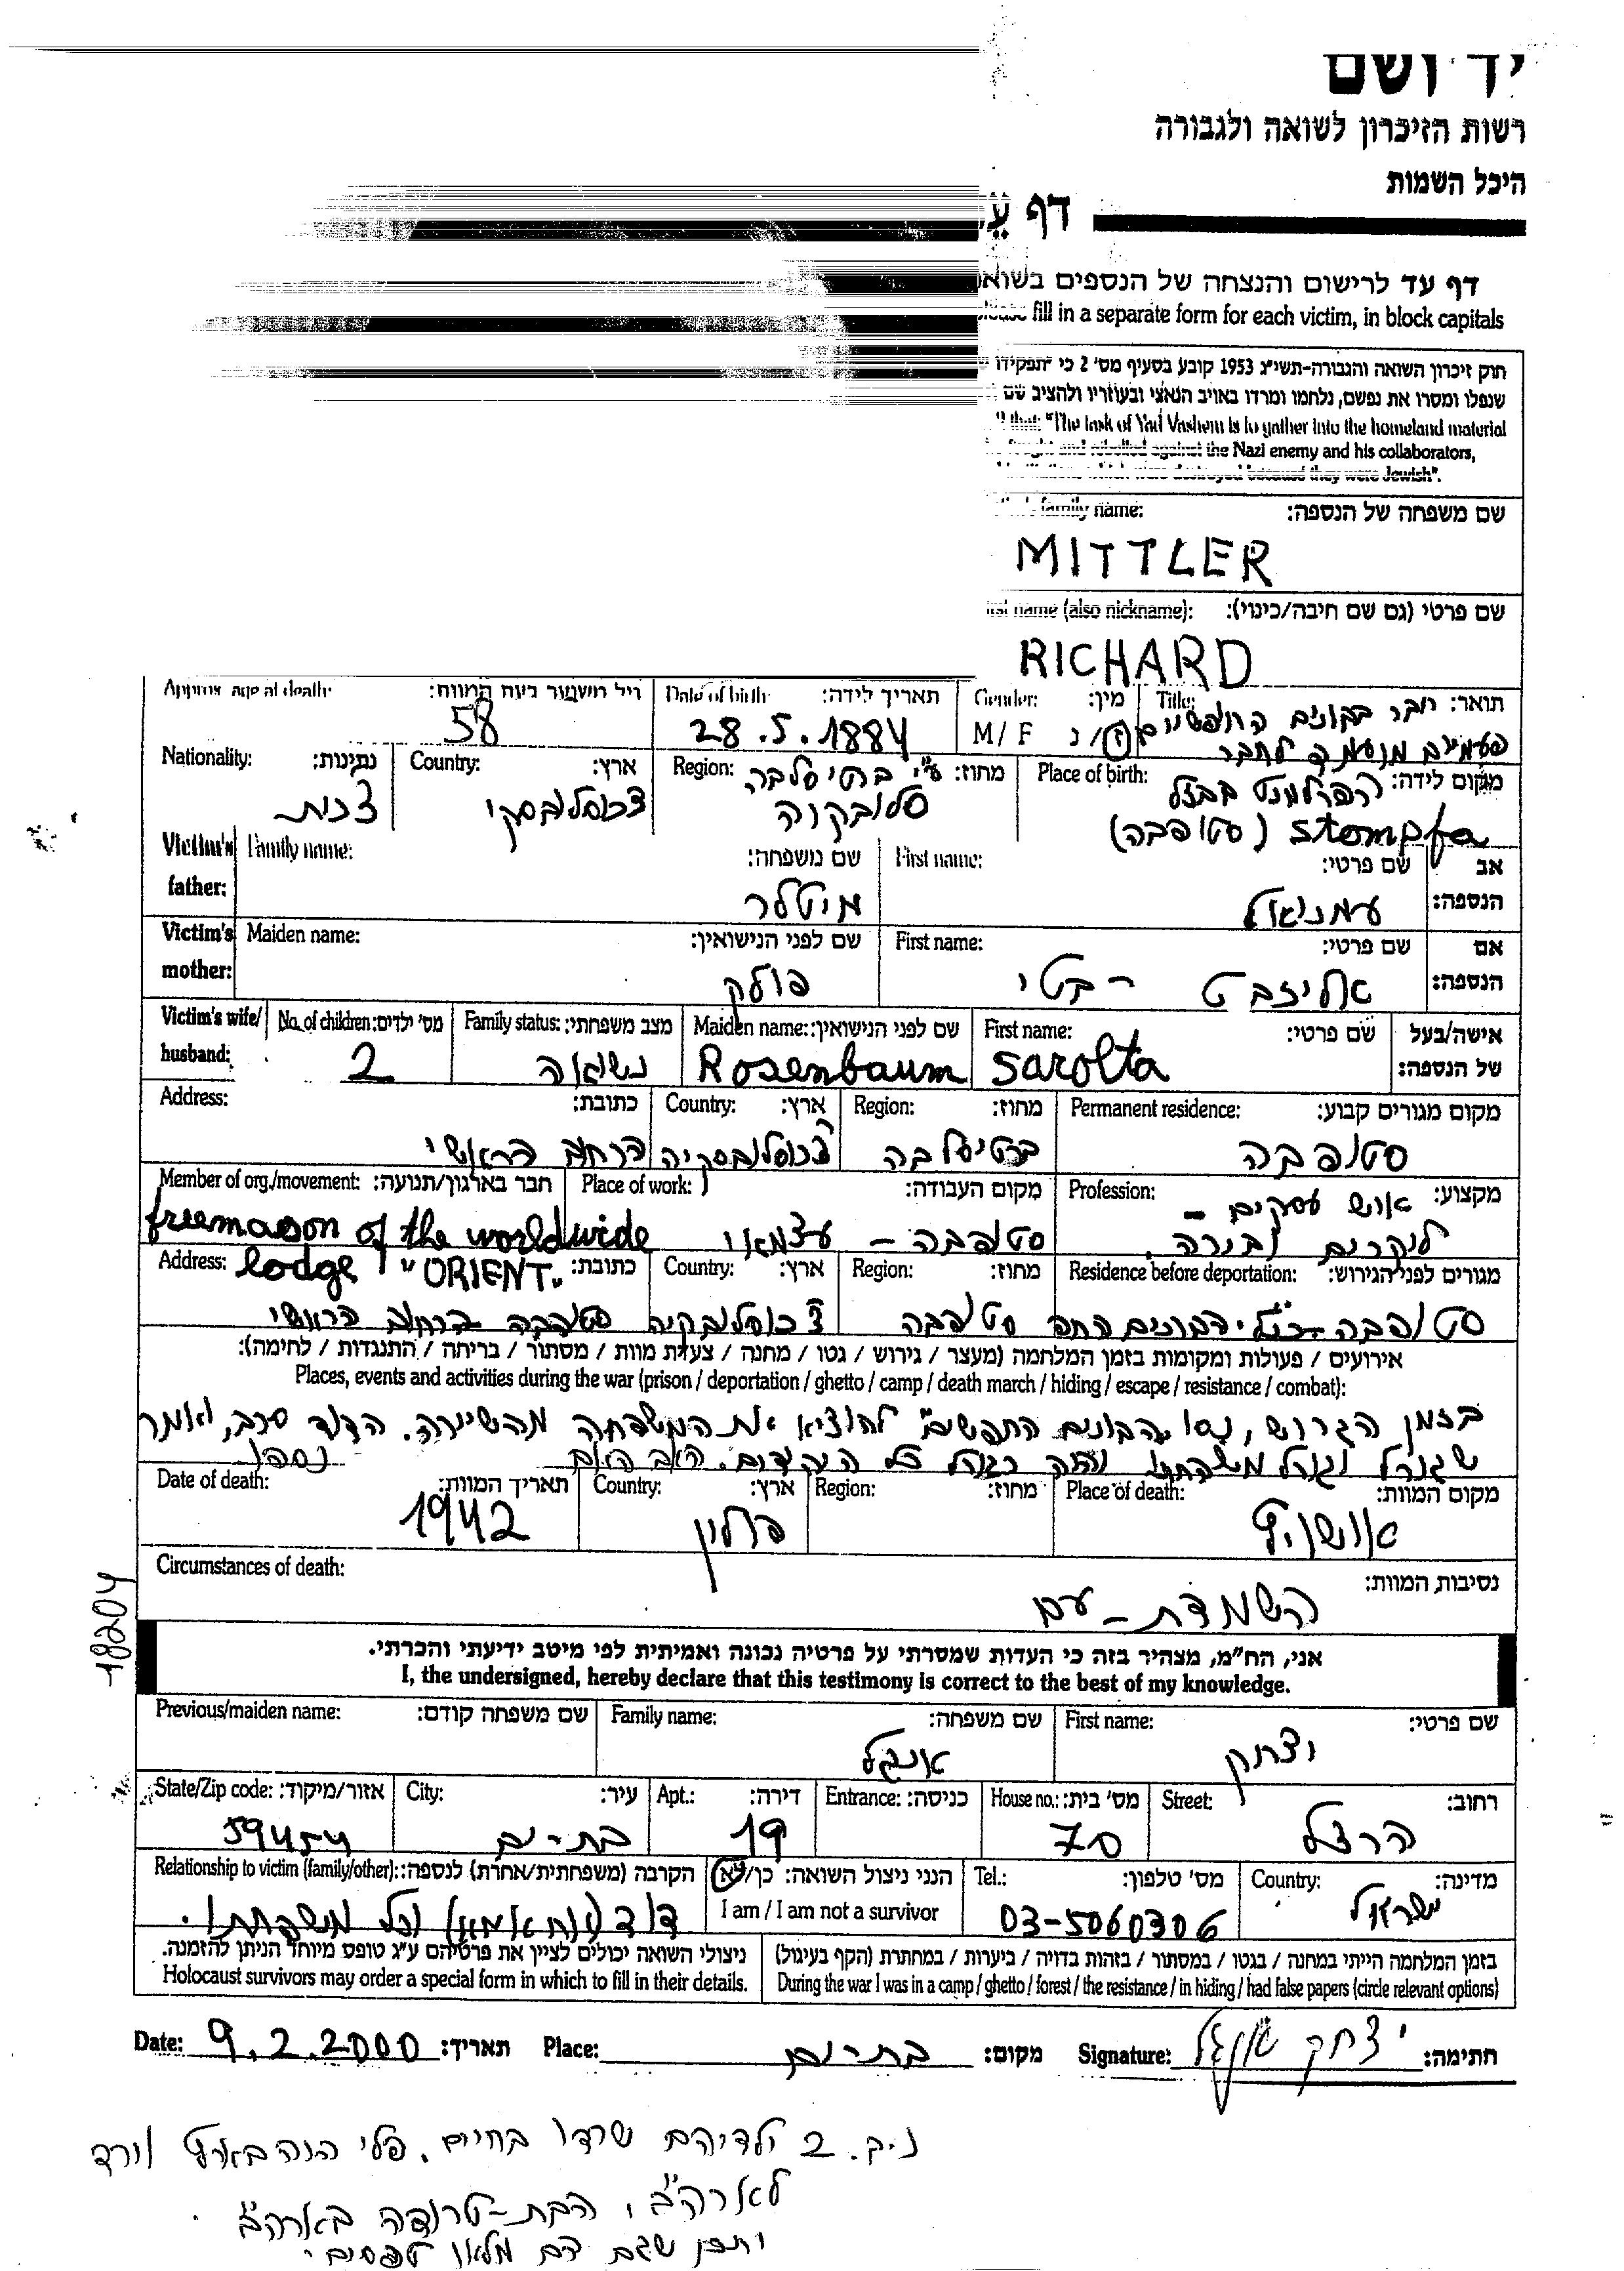 יד ושם
רשות הזיכרון לשואה ולגבורה
היכל השמות
דף
דף עד לרישום והנצחה של הנספים בשואה
please fill in a separate form for each victim, in block capitals
חוק זיכרון השואה והגבורה-תשי״ג 1953 קובע בסעיף מס׳ 2 כי "תפקידו
שנפלו ומסרו את נפשם, נלחמו ומרדו באויב הנאצי ובעוזריו ולהציב שם
that: "The task of Yad Vashem is to gather into the homeland material
fought and rebelled against the Nazi enemy and his collaborators,
destroyed because they were Jewish".
family name: שם משפחה של הנספה:
MITTLER
first name (also nickname): שם פרטי (גם שם חיבה/כינוי):
RICHARD
Approx. age at death: גיל משוער בעת המוות: Date of birth: תאריך לידה: Gender: מין: Title: תואר:
58 28.5.1884 M / F ז / נ חבר בבונים החופשיים
Nationality: נתינות: Country: ארץ: Region: מחוז: ע"י ברטיסלבה Place of birth: מקום לידה:
צכית צכוסלובקי סלובקיה
stompfa (סטופבה)
Victim's father: Family name: שם משפחה: First name: שם פרטי: אב הנספה:
מיטלר עמניואל
Victim's mother: Maiden name: שם לפני הנישואין: First name: שם פרטי: אם הנספה:
פולק אליזבט - בטי
Victim's wife/husband: No. of children: מס׳ ילדים: Family status: מצב משפחתי: Maiden name: שם לפני הנישואין: First name: שם פרטי: אישה/בעל של הנספה:
2 נשואה Rosenbaum Sarolta
Address: כתובת: Country: ארץ: Region: מחוז: Permanent residence: מקום מגורים קבוע:
ברחוב הראשי צכוסלובקיה ברטיסלבה סטופבה
Member of org./movement: חבר בארגון/תנועה: Place of work: מקום העבודה: Profession: מקצוע: איש עסקים -
freemason of the worldwide סטופבה - עצמאי ליקרים ובירה.
Address: lodge "ORIENT" כתובת: Country: ארץ: Region: מחוז: Residence before deportation: מגורים לפני הגירוש:
סטופבה ברחוב הראשי צכוסלובקיה סטופבה סטופבה
אירועים / פעולות ומקומות בזמן המלחמה (מעצר / גירוש / גטו / מחנה / צעדת מוות / מסתור / בריחה / התנגדות / לחימה):
Places, events and activities during the war (prison / deportation / ghetto / camp / death march / hiding / escape / resistance / combat):
בזמן הגרוש, נסו הבונים החפשים" להוציא את המשפחה מהשיירה. הדוד סרב, ואמר
שגורלו וגורל משפחתו יהיה כגורל כל היהודים. האב האם נספו
Date of death: תאריך המוות: Country: ארץ: Region: מחוז: Place of death: מקום המוות:
1942 פולין אושוויץ
Circumstances of death: נסיבות המוות:
השמדת - עם
אני, הח״מ, מצהיר בזה כי העדות שמסרתי על פרטיה נכונה ואמיתית לפי מיטב ידיעתי והכרתי.
I, the undersigned, hereby declare that this testimony is correct to the best of my knowledge.
18204
Previous/maiden name: שם משפחה קודם: Family name: שם משפחה: First name: שם פרטי:
אנגל יצחק
State/Zip code: אזור/מיקוד: City: עיר: Apt.: דירה: Entrance: כניסה: House no.: מס׳ בית: Street: רחוב:
59454 בת-ים 19 70 הרצל
Relationship to victim (family/other): הקרבה (משפחתית/אחרת) לנספה: הנני ניצול השואה: כן/לא Tel.: מס׳ טלפון: Country: מדינה:
דוד (אח אמא) וכל משפחתו. I am / I am not a survivor 03-5060306 ישראל
ניצולי השואה יכולים לציין את פרטיהם ע״ג טופס מיוחד הניתן להזמנה. בזמן המלחמה הייתי במחנה / בגטו / במסתור / בזהות בדויה / ביערות / במחתרת (הקף בעיגול)
Holocaust survivors may order a special form in which to fill in their details. During the war I was in a camp / ghetto / forest / the resistance / in hiding / had false papers (circle relevant options)
Date: 9.2.2000 תאריך: Place: בת-ים מקום: Signature: יצחק אנגל חתימה:
נ.ב. 2 ילדיהם שרדו בחיים. פלי היה בארץ וירד
לארה"ב, הבת - טרודה בארה"ב
יתכן שגם הם מלאו טפסים.